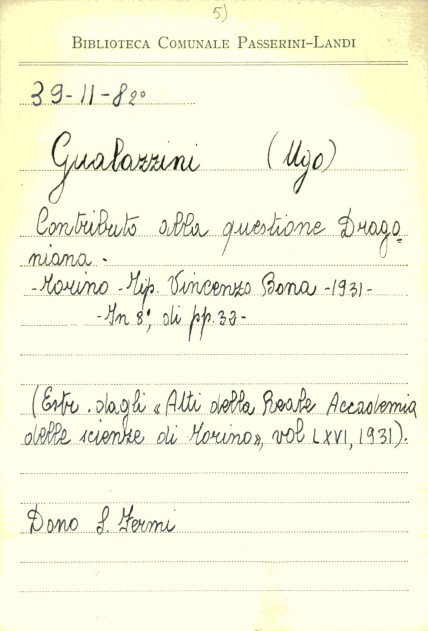 5)
BIBLIOTECA COMUNALE PASSERINI-LANDI
39-11-82°
Gualazzini (Ugo)
Contributo alla questione Drago=
niana.
-Torino-Tip. Vincenzo Bona-1931-
-In 8°, di pp. 33-
(Estr. dagli «Atti della Reale Accademia
delle scienze di Torino», vol LXVI, 1931).
Dono S. Fermi